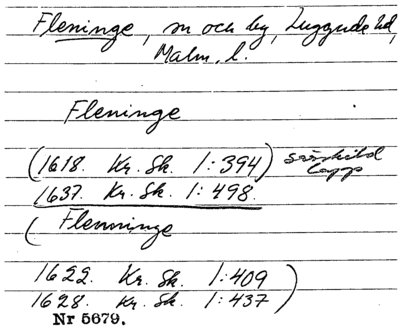 Fleninge, sn och by, Luggude hd,
Malm. l.
Fleninge
(1618. Kr. Sk. 1:394) särskild
lapp
1637. Kr. Sk. 1:498.
(Flenninge
1622. Kr. Sk. 1:409)
1628. Kr. Sk. 1:437
Nr 5679.